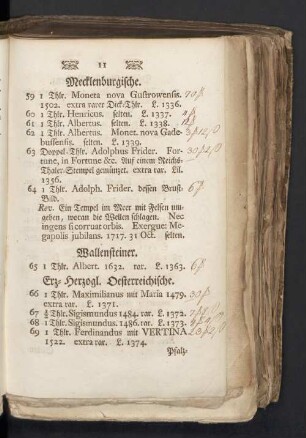 11
Mecklenburgische.
59 1 Thlr. Moneta nova Gustrowensis.
1502. extra rarer Dick-Thlr. L. 1336.
60 1 Thlr. Henricus. selten. L. 1337.
61 1 Thlr. Albertus. selten. L. 1338.
62 1 Thlr. Albertus. Monet. nova Gade-
bussensis. selten. L. 1339.
63 Doppel-Thlr. Adolphus Frider. For-
tune, in Fortune &c. Auf einem Reichs-
Thaler-Stempel gemünzet. extra rar. Lil.
1356.
64 1 Thlr. Adolph. Frider. dessen Brust-
Bild.
Rev. Ein Tempel im Meer mit Felsen um-
geben, woran die Wellen schlagen. Nec
ingens si corruat orbis. Exergue: Me-
gapolis jubilans. 1717. 31 Oct. selten.
Wallensteiner.
65 1 Thlr. Albert. 1632. rar. L. 1363.
Erz-Herzogl. Oesterreichische.
66 1 Thlr. Maximilianus mit Maria 1479.
extra rar. L. 1371.
67 ½ Thlr. Sigismundus 1484. rar. L. 1372.
68 1 Thlr. Sigismundus. 1486. rar. L. 1373.
69 1 Thlr. Ferdinandus mit VERTINA
1522. extra rar. L. 1374.
Pfalz-